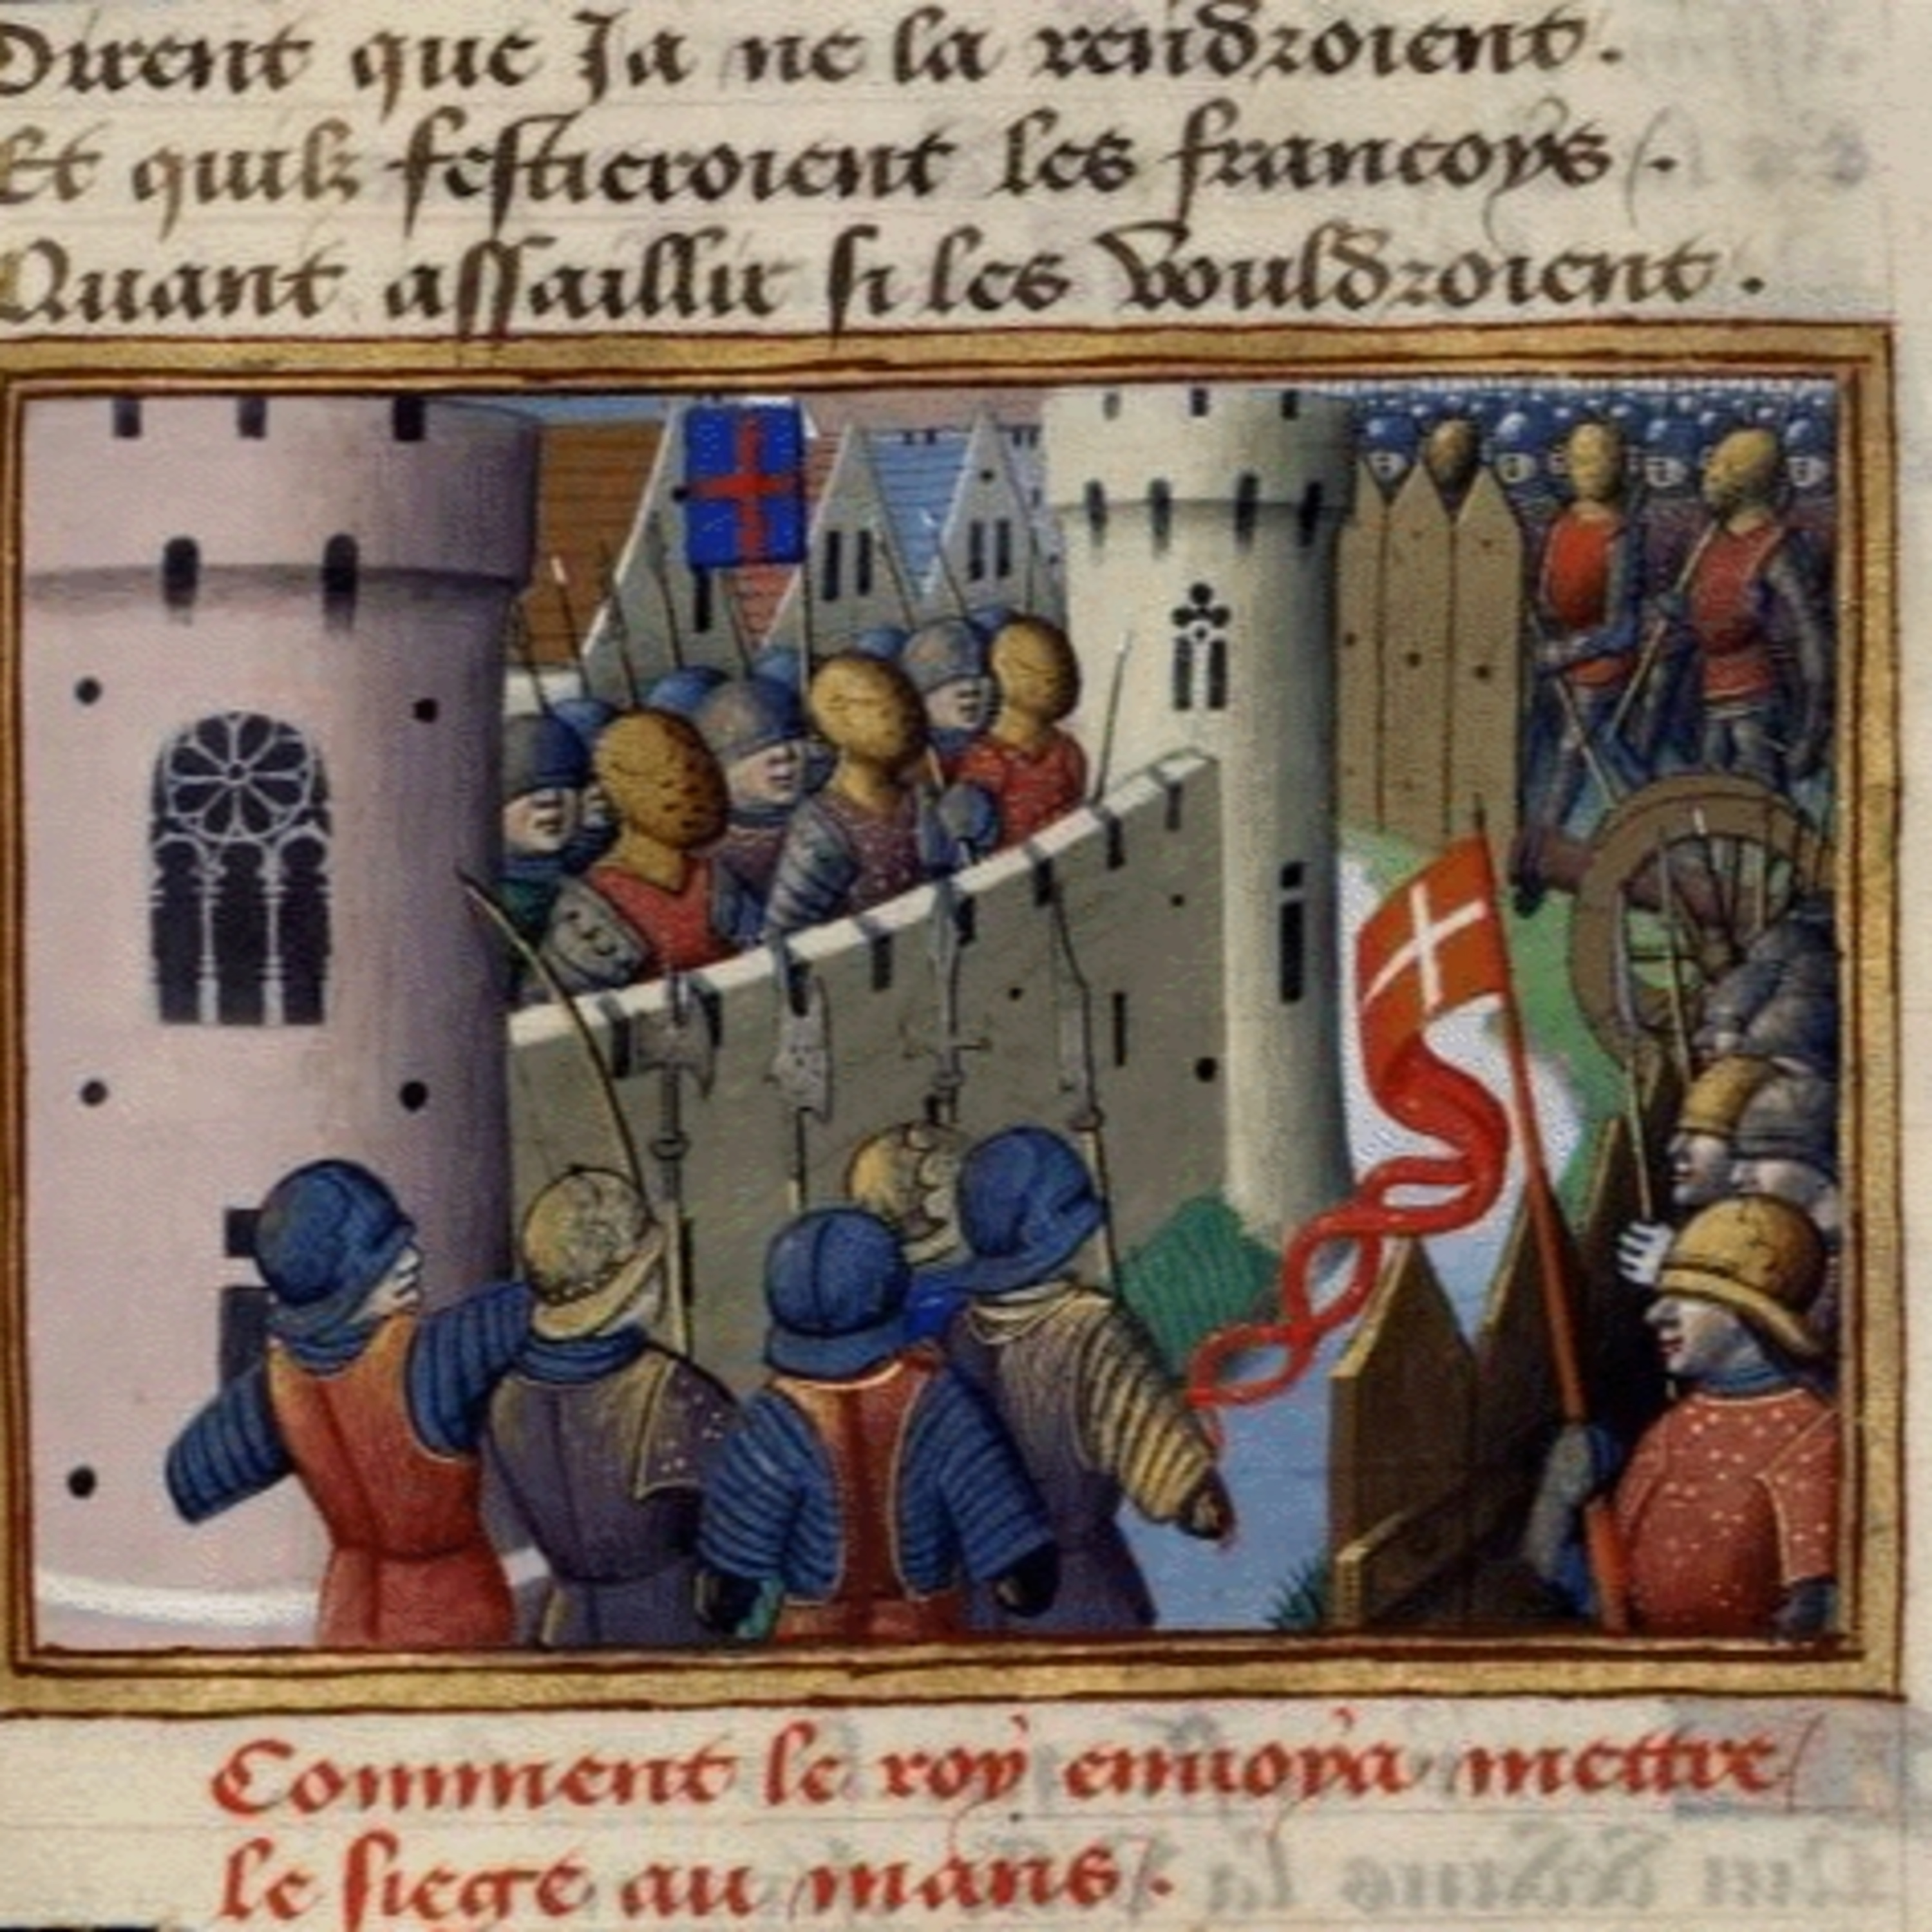 Dirent que Ja ne la rendroient.
Et quilz festieroient les francoys.
Quant assaillir si les vouldroient.
Comment le roy enuoya mettre
le siege au mans.